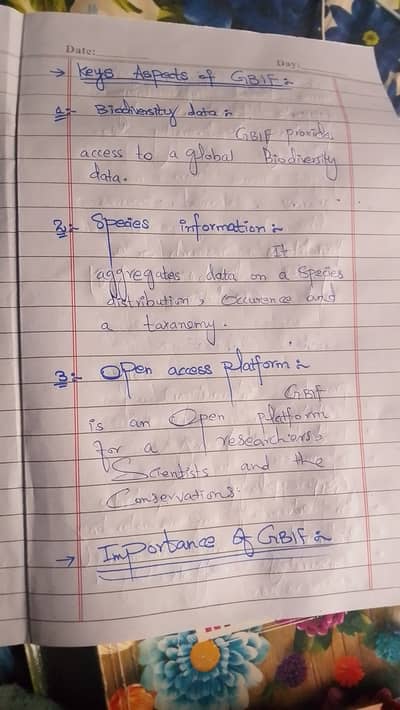 Date:
Day:
→ Keys Aspects of GBIF :-
1:- Biodiversity data :-
GBIF provids
access to a global Biodiversity
data.
2:- Species information :-
It
aggregates data on a Species
distribution, Occurence and
a taxanomy.
3:- Open access Platform :-
GBIF
is an Open platform
for a researchers,
Scientists and the
Conservations.
→ Importance of GBIF :-